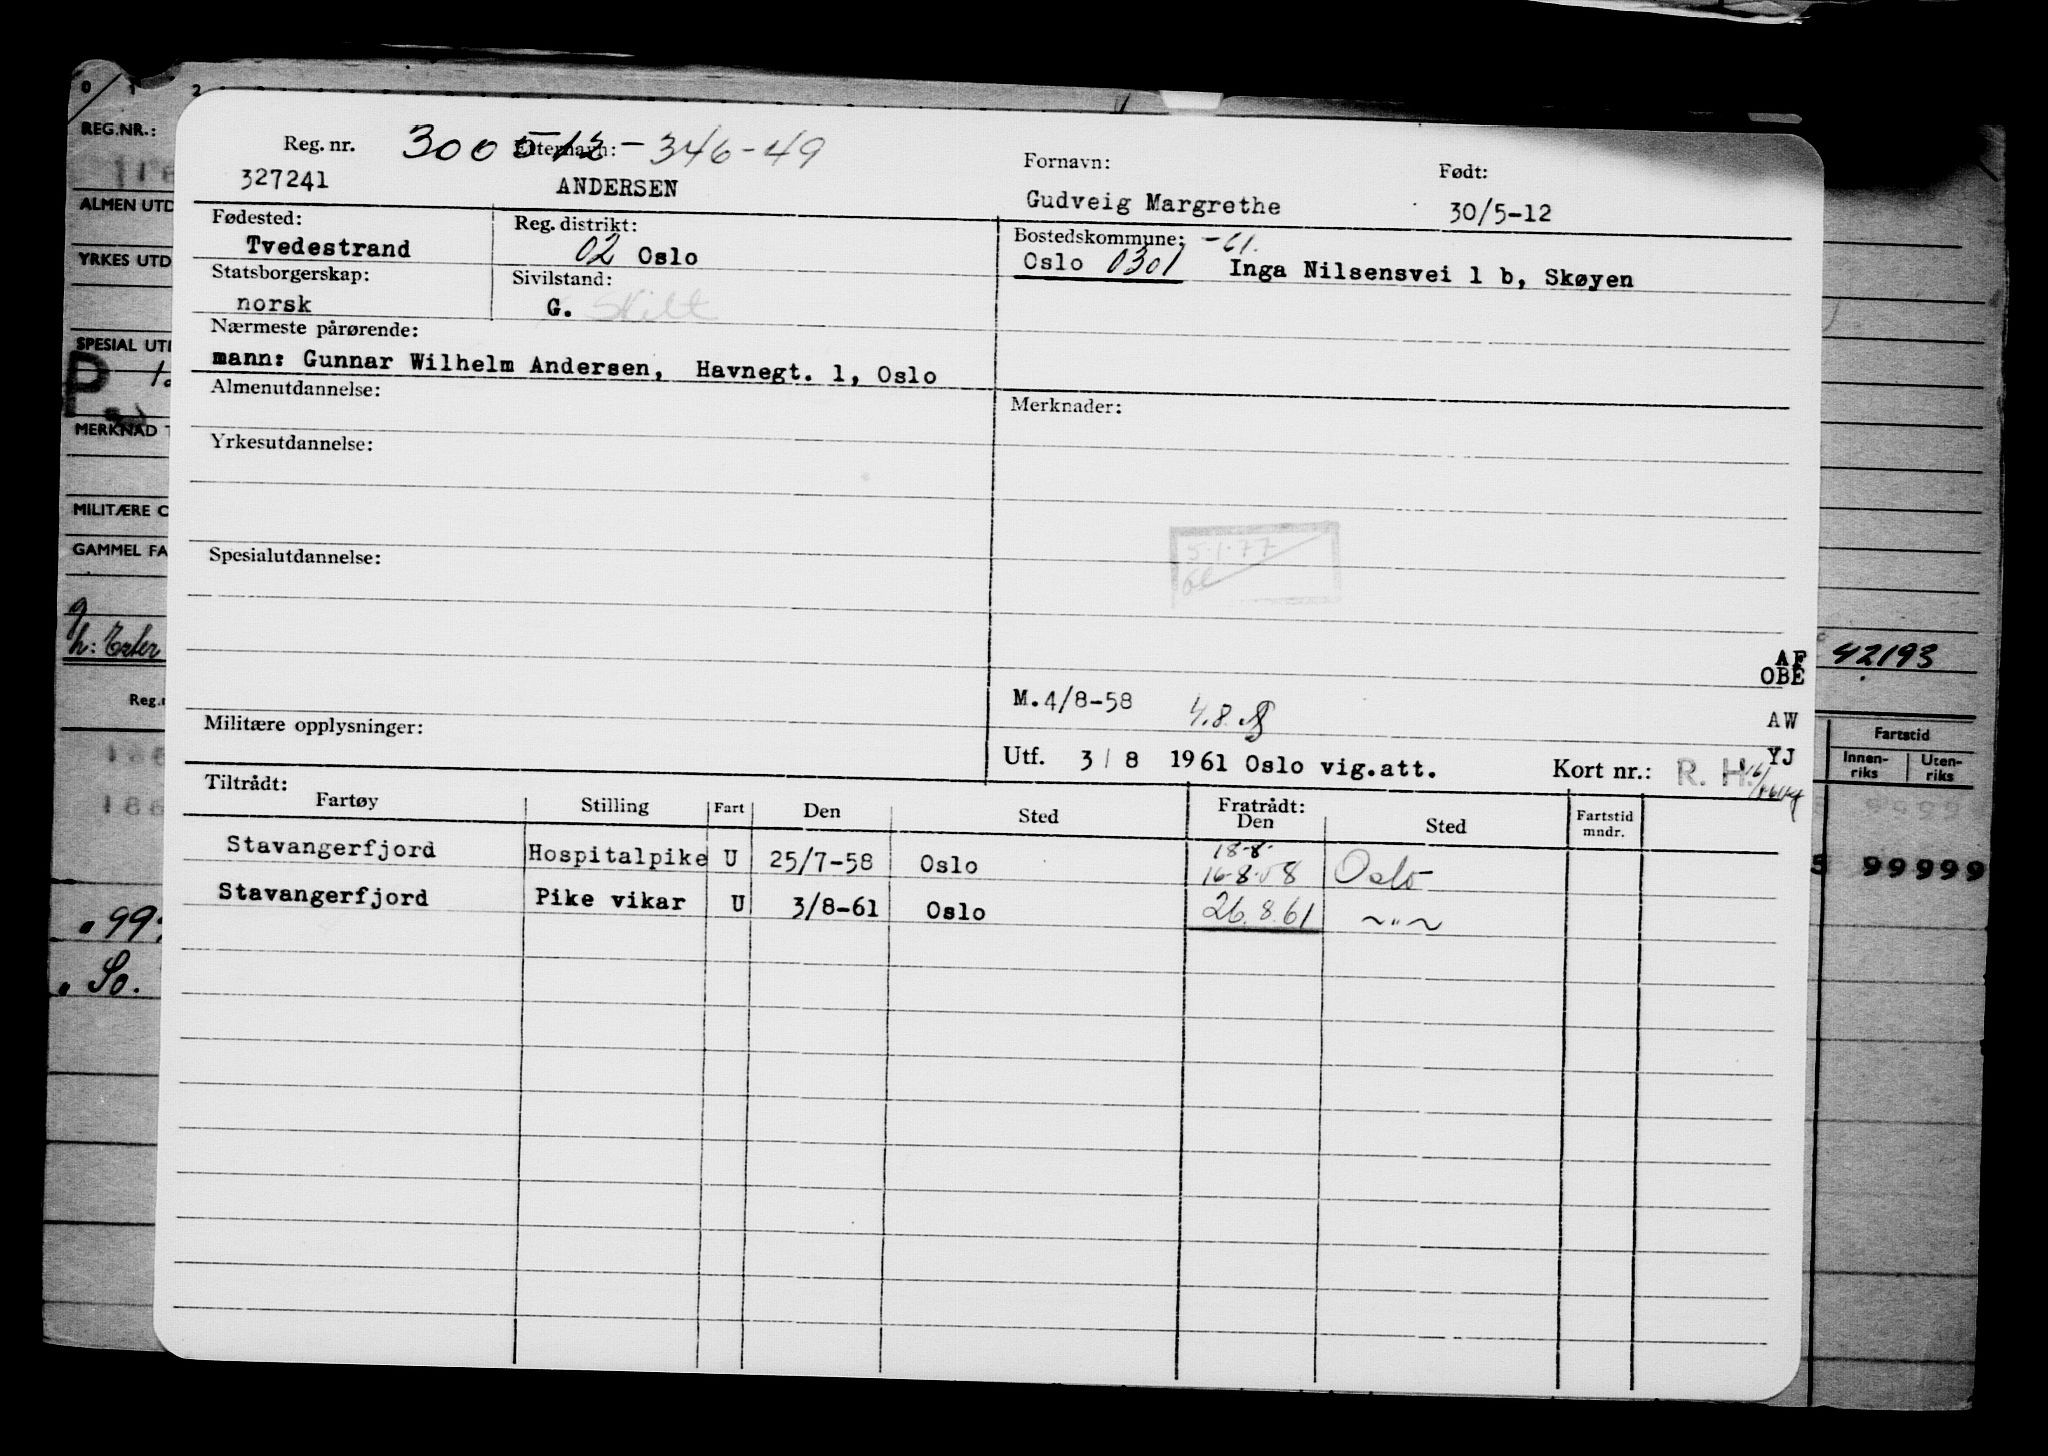 0 1 2
REG.NR.:
ALMEN UTD
YRKES UTD
SPESIAL UTD
P
MERKNAD T
MILITÆRE O
GAMMEL FA
Reg.n
Reg. nr. Etternavn: 346-49 Fornavn: Født:
327241 ANDERSEN Gudveig Margrethe 30/5-12
Fødested: Reg. distrikt: Bostedskommune: -61.
Tvedestrand 02 Oslo Oslo 0301 Inga Nilsensvei 1 b, Skøyen
Statsborgerskap: Sivilstand:
norsk G. Skilt
Nærmeste pårørende:
mann: Gunnar Wilhelm Andersen, Havnegt. 1, Oslo
Almenutdannelse: Merknader:
Yrkesutdannelse:
5.1.77
Spesialutdannelse:
AF 42193
OBE
M.4/8-58 4.8. AW
Militære opplysninger:
Utf. 3/8 1961 Oslo vig.att. Kort nr.: R. H. YJ
Fartstid
Innen-riks Uten-riks
Tiltrådt: Fratrådt:
Fartøy Stilling Fart Den Sted Den Sted Fartstid mndr.
Stavangerfjord Hospitalpike U 25/7-58 Oslo 18-8- 16-8-58 Oslo
Stavangerfjord Pike vikar U 3/8-61 Oslo 26.8.61 ~"~
99999
So.